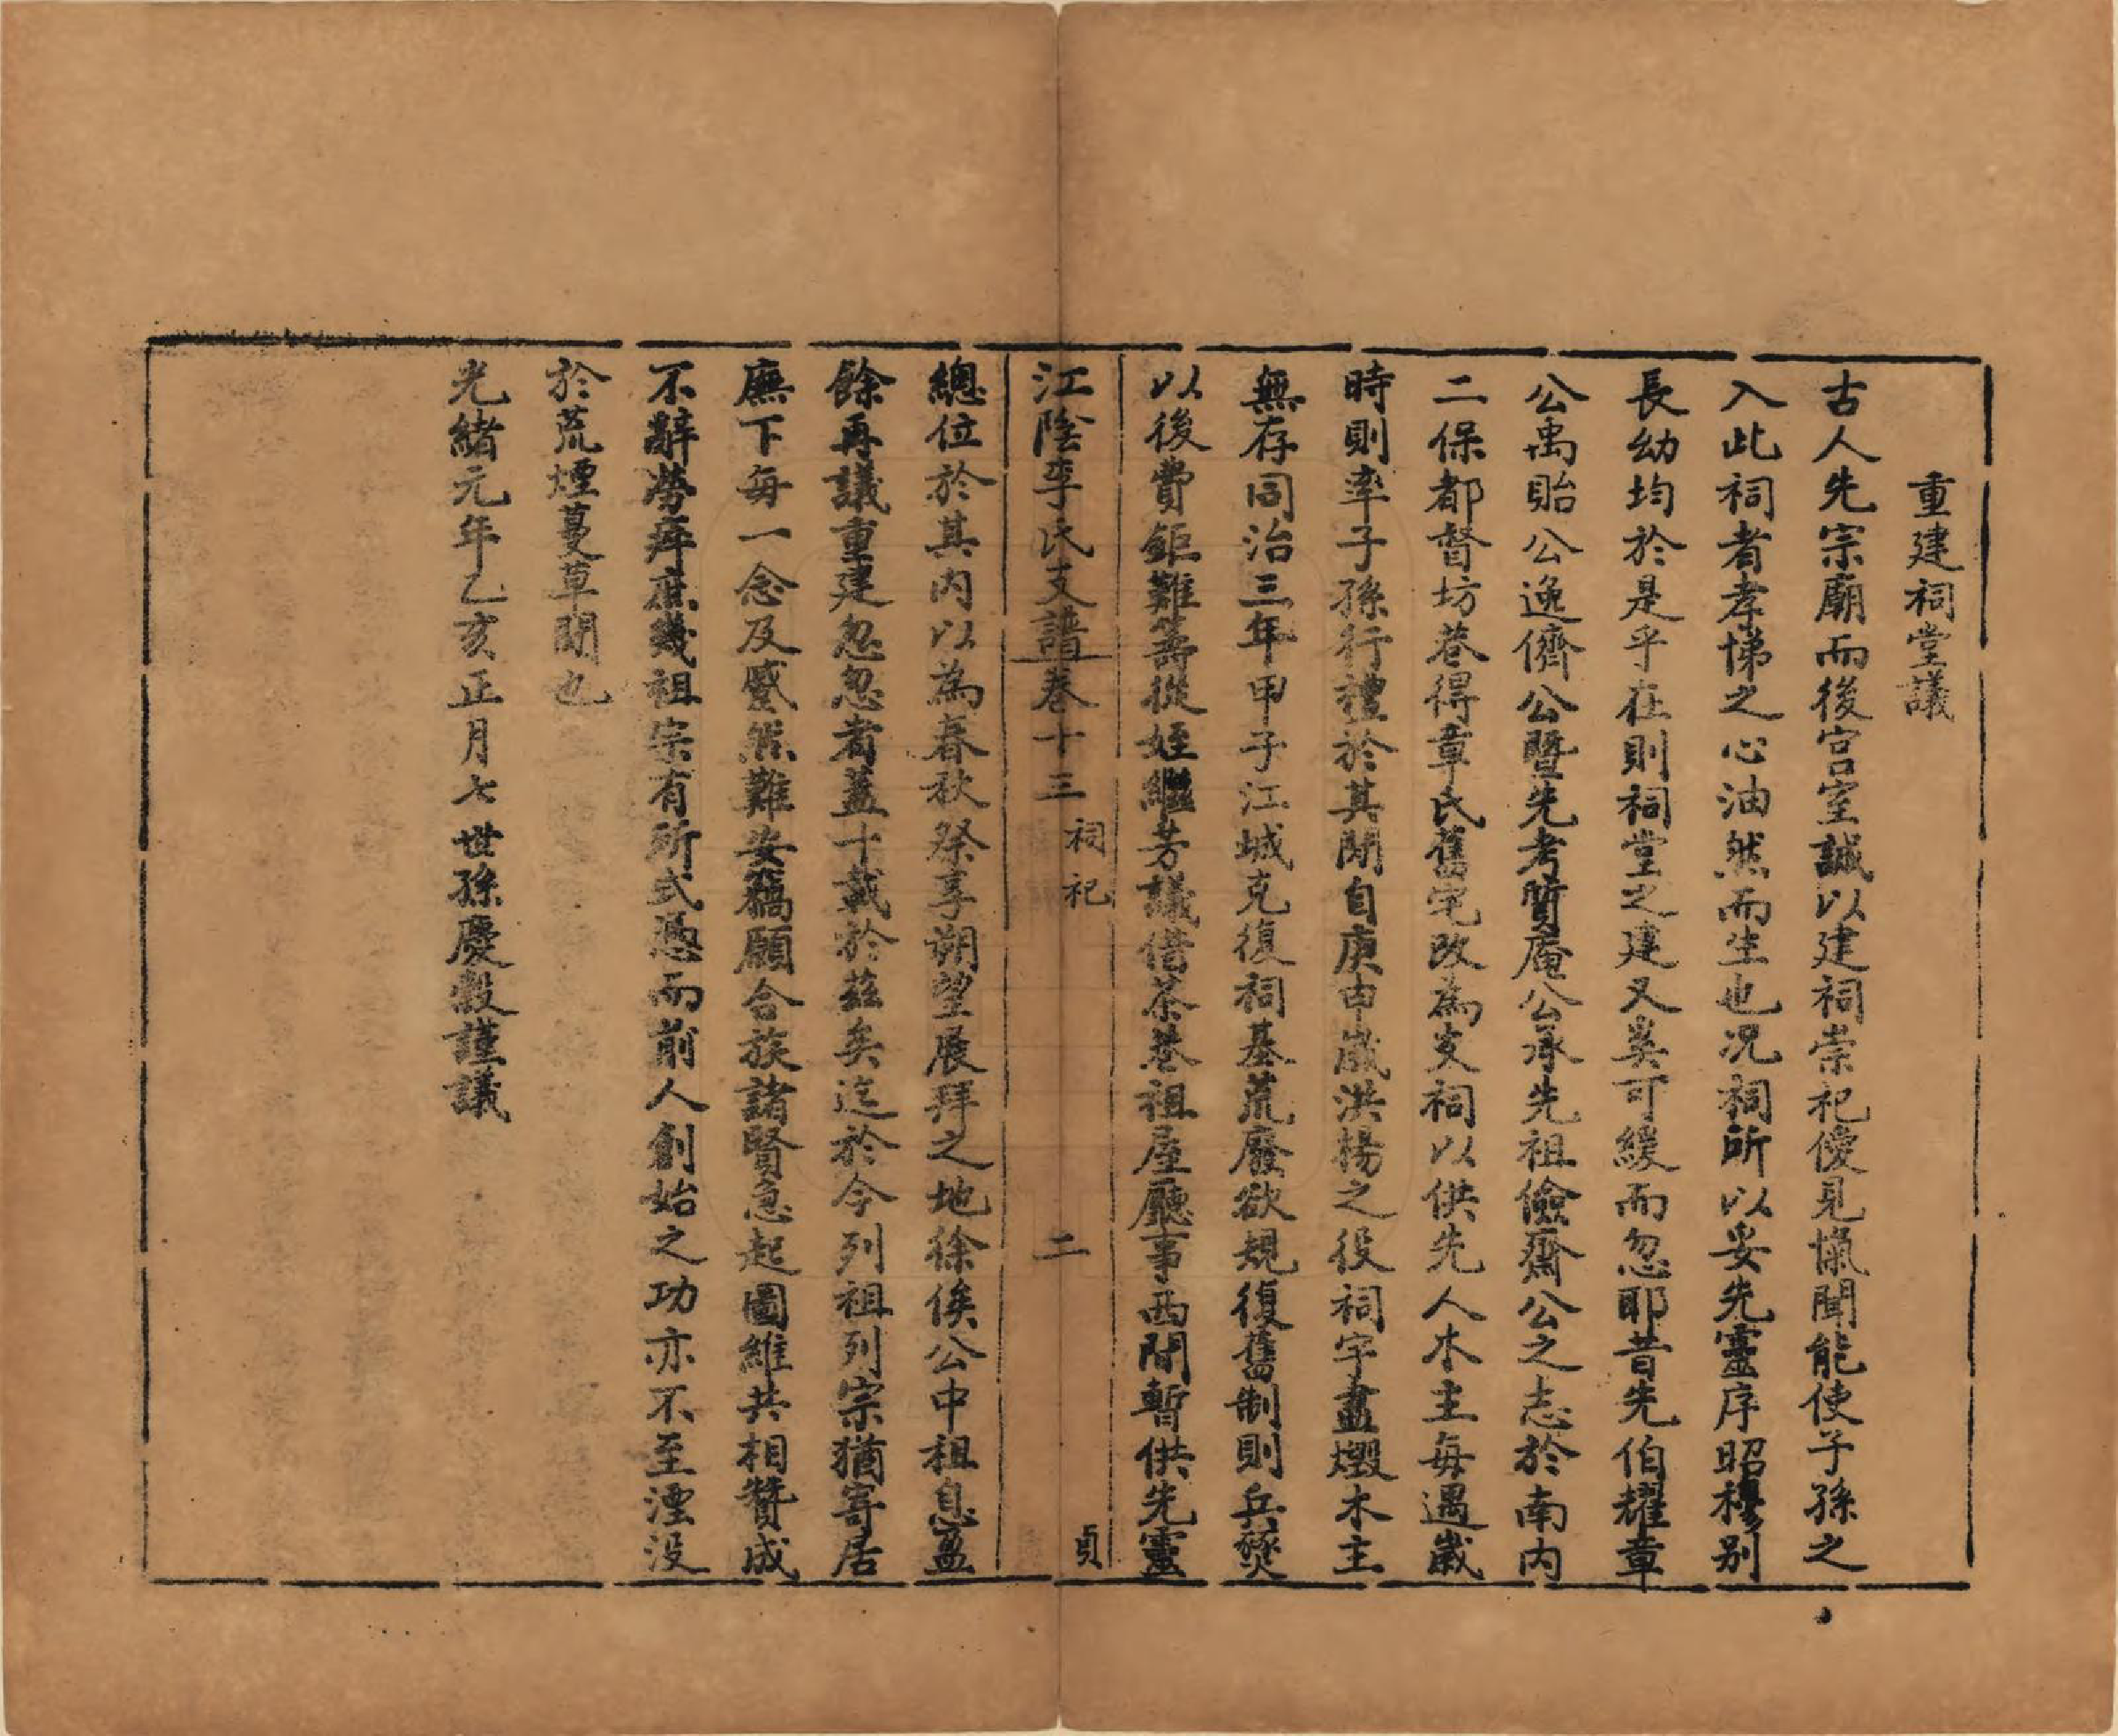 重建祠堂議
古人先宗廟而後宮室誠以建祠崇祀僾見愾聞能使子孫之
入此祠者孝悌之心油然而生也况祠所以妥先靈序昭穆别
長幼均於是乎在則祠堂之建又奚可緩而忽耶昔先伯耀章
公禹貽公逸儕公暨先考質庵公承先祖儉齋公之志於南内
二保都督坊巷得章氏舊宅改為支祠以供先人木主每遇歲
時則率子孫行禮於其間自庚申歲洪楊之役祠宇盡燬木主
無存同治三年甲子江城克復祠基荒廢欲規復舊制則兵燹
以後費鉅難籌從姪繼芳議借茶巷祖屋廳事西間暫供先靈
江陰李氏支譜卷十三 祠祀 二 貞
總位於其内以為春秋祭享朔望展拜之地徐俟公中租息盈
餘再議重建忽忽者蓋十載於兹矣迄於今列祖列宗猶寄居
廡下每一念及蹙然難安竊願合族諸賢急起圖維共相贊成
不辭勞瘁庶幾祖宗有所式憑而前人創始之功亦不至湮没
於荒煙蔓草間也
光緒元年乙亥正月七世孫慶瑴謹議